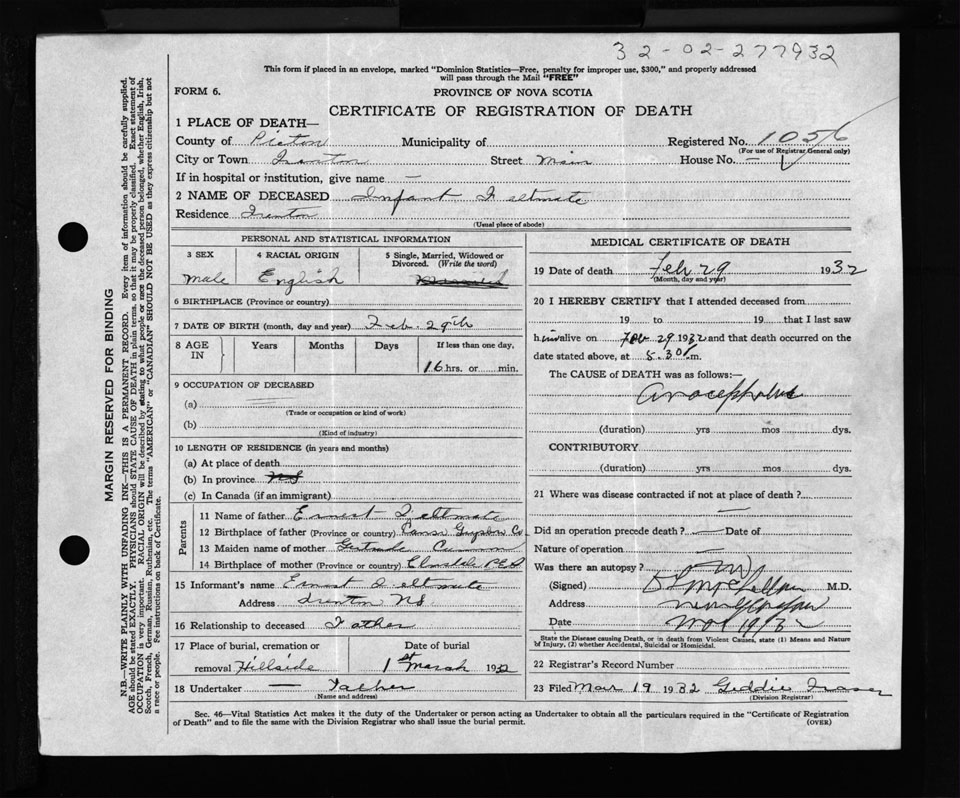 32-02-277932
This form if placed in an envelope, marked "Dominion Statistics—Free, penalty for improper use, $300," and properly addressed
will pass through the Mail "FREE"
FORM 6.
PROVINCE OF NOVA SCOTIA
CERTIFICATE OF REGISTRATION OF DEATH
1 PLACE OF DEATH—
County of Pictou Municipality of Registered No. 1056
(For use of Registrar General only)
City or Town Trenton Street Main House No. —
If in hospital or institution, give name —
2 NAME OF DECEASED Infant Feltmate
Residence Trenton
(Usual place of abode)
PERSONAL AND STATISTICAL INFORMATION
3 SEX 4 RACIAL ORIGIN 5 Single, Married, Widowed or Divorced. (Write the word)
Male English
6 BIRTHPLACE (Province or country)
7 DATE OF BIRTH (month, day and year) Feb. 29th
8 AGE IN Years Months Days If less than one day,
16 hrs. or min.
9 OCCUPATION OF DECEASED
(a)
(Trade or occupation or kind of work)
(b)
(Kind of industry)
10 LENGTH OF RESIDENCE (in years and months)
(a) At place of death
(b) In province NS
(c) In Canada (if an immigrant)
Parents
11 Name of father Ernest Feltmate
12 Birthplace of father (Province or country) Canso Guysboro Co.
13 Maiden name of mother Gertrude
14 Birthplace of mother (Province or country) P.E.I
15 Informant's name Ernest Feltmate
Address Trenton NS.
16 Relationship to deceased Father
17 Place of burial, cremation or removal Hillside
Date of burial
1st March 1932
18 Undertaker — Father
(Name and address)
MEDICAL CERTIFICATE OF DEATH
19 Date of death Feb 29 1932
(Month, day and year)
20 I HEREBY CERTIFY that I attended deceased from
19 to 19 that I last saw
him alive on Feb 29 1932 and that death occurred on the
date stated above, at 8.30 m.
The CAUSE of DEATH was as follows:—
(duration) yrs mos dys.
CONTRIBUTORY
(duration) yrs mos dys.
21 Where was disease contracted if not at place of death?
—
Did an operation precede death? — Date of
Nature of operation —
Was there an autopsy?
(Signed) M.D.
Address New Glasgow
Date
State the Disease causing Death, or in death from Violent Causes, state (1) Means and Nature
of Injury, (2) whether Accidental, Suicidal or Homicidal.
22 Registrar's Record Number
23 Filed Mar 19 1932 Geddie Fraser
(Division Registrar)
Sec. 46—Vital Statistics Act makes it the duty of the Undertaker or person acting as Undertaker to obtain all the particulars required in the "Certificate of Registration
of Death" and to file the same with the Division Registrar who shall issue the burial permit.
(OVER)
MARGIN RESERVED FOR BINDING
N.B.—WRITE PLAINLY WITH UNFADING INK—THIS IS A PERMANENT RECORD. Every item of information should be carefully supplied.
AGE should be stated EXACTLY. PHYSICIANS should STATE CAUSE OF DEATH in plain terms, so that it may be properly classified. Exact statement of
OCCUPATION is very important. RACIAL ORIGIN will be described by stating to what people or race the deceased person belonged, whether English, Irish,
Scotch, French, German, Russian, Ruthenian, etc. The terms "AMERICAN" or "CANADIAN" SHOULD NOT BE USED as they express citizenship but not
a race or people. Fee instructions on back of Certificate.